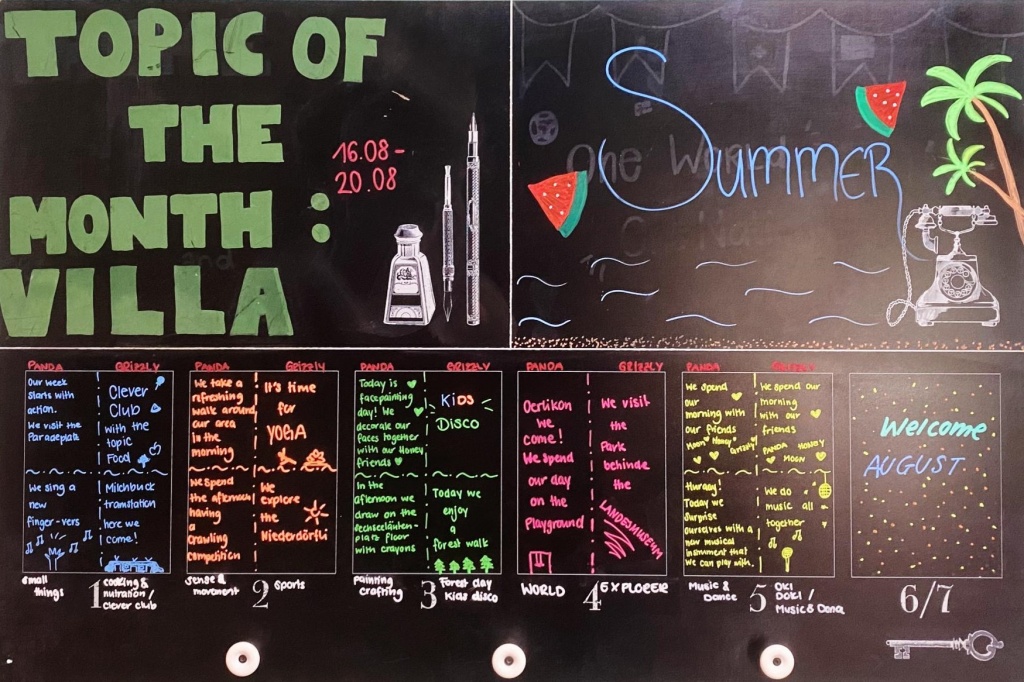 TOPIC OF
THE
MONTH :
VILLA
16.08 -
20.08
SUMMER
One World
PANDA
GRIZZLY
Our week
starts with
action.
We visit the
Paradeplatz
Clever
Club
with the
topic
Food
We sing a
new
finger-vers
Milchbuck
tramstation
here we
come!
small
things
1
cooking &
nutration /
clever club
PANDA
GRIZZLY
We take a
refreshing
walk around
our area
in the
morning
It's time
for
YOGA
We spend
the afternoon
having
a
crawling
competition
We
explore
the
Niederdörfli
sense &
movement
2
Sports
PANDA
GRIZZLY
Today is
facepainting
day! We
decorate our
faces together
with our Honey
friends
Kids
Disco
In the
afternoon we
draw on the
Sechseläuten-
platz floor
with crayons
Today we
enjoy
a
forest walk
painting
crafting
3
Forest day
Kids disco
PANDA
GRIZZLY
Oerlikon
we
come!
We spend
our day
on the
Playground
We visit
the
Park
behinde
the
LANDESMUSEUM
WORLD
4
EXPLOERER
PANDA
GRIZZLY
We spend
our
morning with
our friends
Moon Honey Grizzly
We spend our
morning
with our
friends
PANDA HONEY
MOON
Hurray!
Today we
surprise
ourselves with a
new musical
instrument that
we can play with.
We do
music all
together
Music &
Dance
5
OKI
DOKI /
Music & Danc
Welcome
AUGUST
6/7